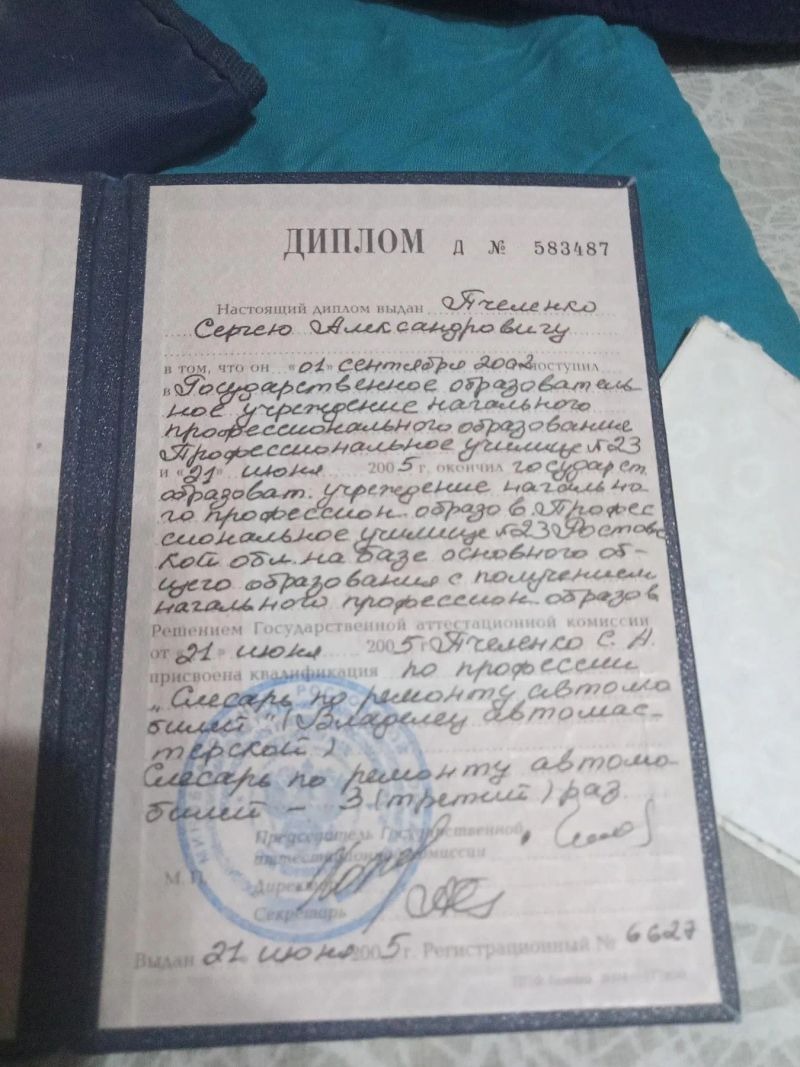 ДИПЛОМ Д № 583487
Настоящий диплом выдан Пчеленко
Сергею Александровичу
в том, что он «01» сентября 2002 поступил
в Государственное образователь
ное учреждение начального
профессионального образования
Профессиональное училище №23
и «21» июня 2005 г. окончил государст.
образоват. учреждение начальна
го профессион. образов. Професс
сиональное училище №23 Ростовс
кой обл. на базе основного об-
щего образования с получением
начального профессион. образов
Решением Государственной аттестационной комиссии
от «21» июня 2005 г Пчеленко С. А.
присвоена квалификация по профессии
„Слесарь по ремонту автомо
билей" (Владелец автомас-
терской)
Слесарь по ремонту автомо
билей – 3 (третий) раз.
Председатель Государственной
аттестационной комиссии
М. П. Директор
Секретарь
Выдан 21 июня 2005 г. Регистрационный № 6627